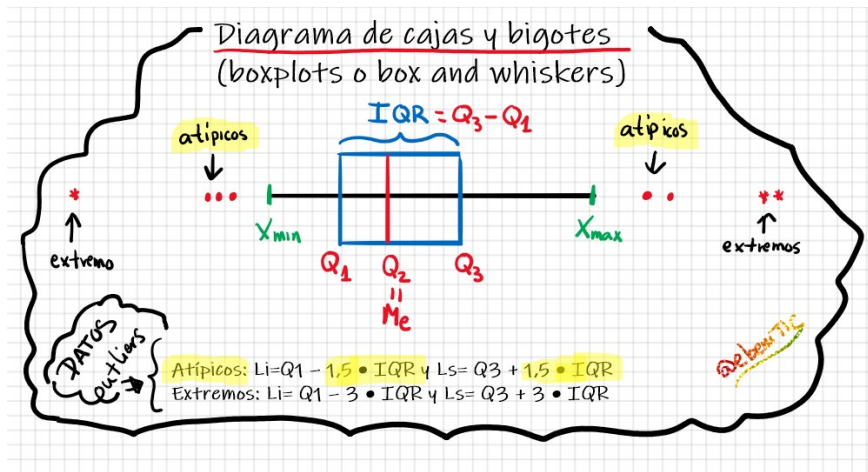 Diagrama de cajas y bigotes
(boxplots o box and whiskers)
IQR = Q3 - Q1
atípicos
atípicos
Xmin
Xmax
extremo
extremos
Q1 Q2 Q3
=
Me
DATOS
outliers
Atípicos: Li=Q1 - 1,5 • IQR y Ls= Q3 + 1,5 • IQR
Extremos: Li= Q1 - 3 • IQR y Ls= Q3 + 3 • IQR